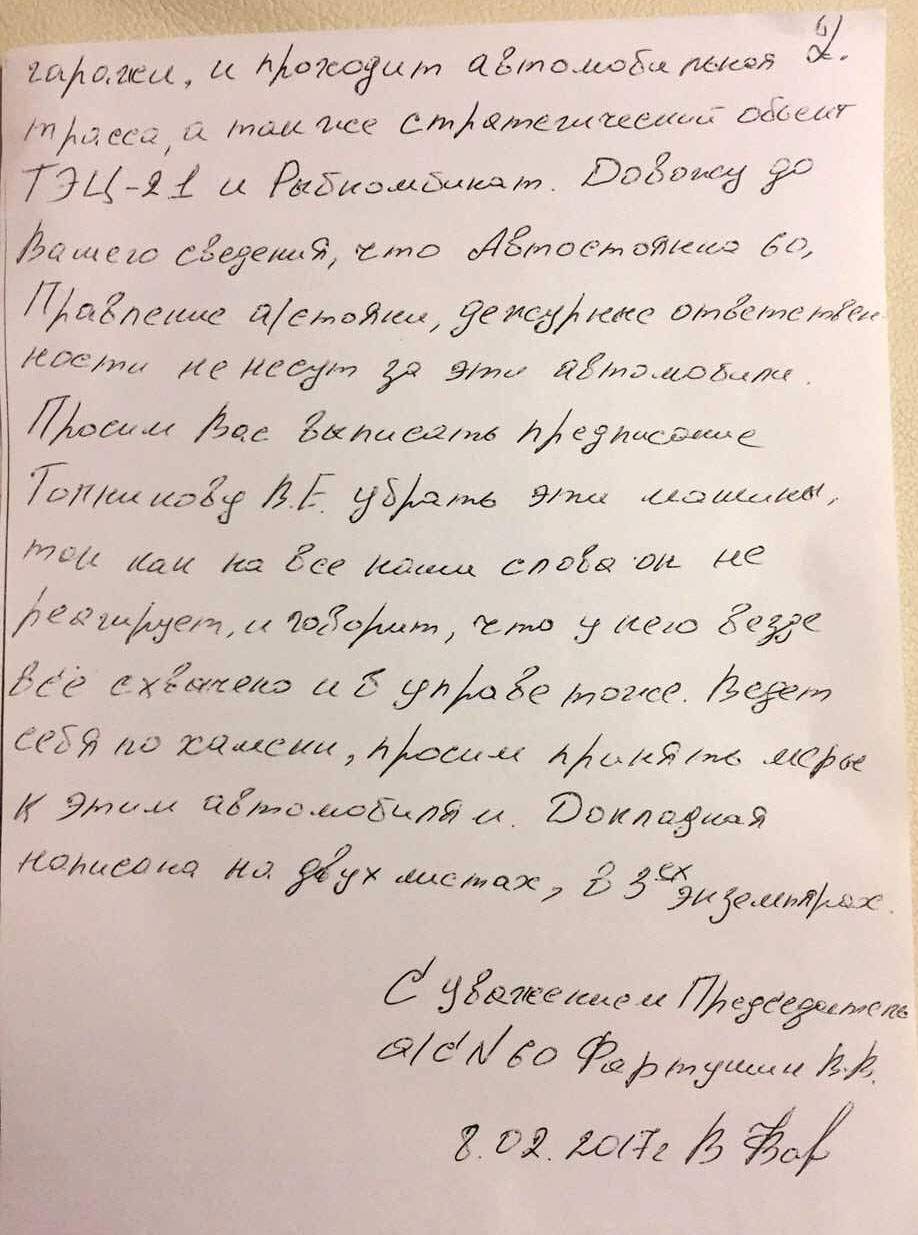 2.
гаражи, и проходит автомобильная
трасса, а так же стратегический объект
ТЭЦ-21 и Рыбкомбинат. Довожу до
Вашего сведения, что Автостоянка 60,
Правление а/стоянки, дежурные ответствен-
ности не несут за эти автомобили.
Просим Вас выписать предписание
В.Е. убрать эти машины,
так как на все наши слова он не
реагирует, и говорит, что у него везде
всё схвачено и в управе тоже. Ведет
себя по хамски, просим принять меры
к этим автомобилям. Докладная
написана на двух листах, в 3ех экземплярах.
С уважением Председатель
а/с N 60 Фартушин В.В.
8.02.2017г